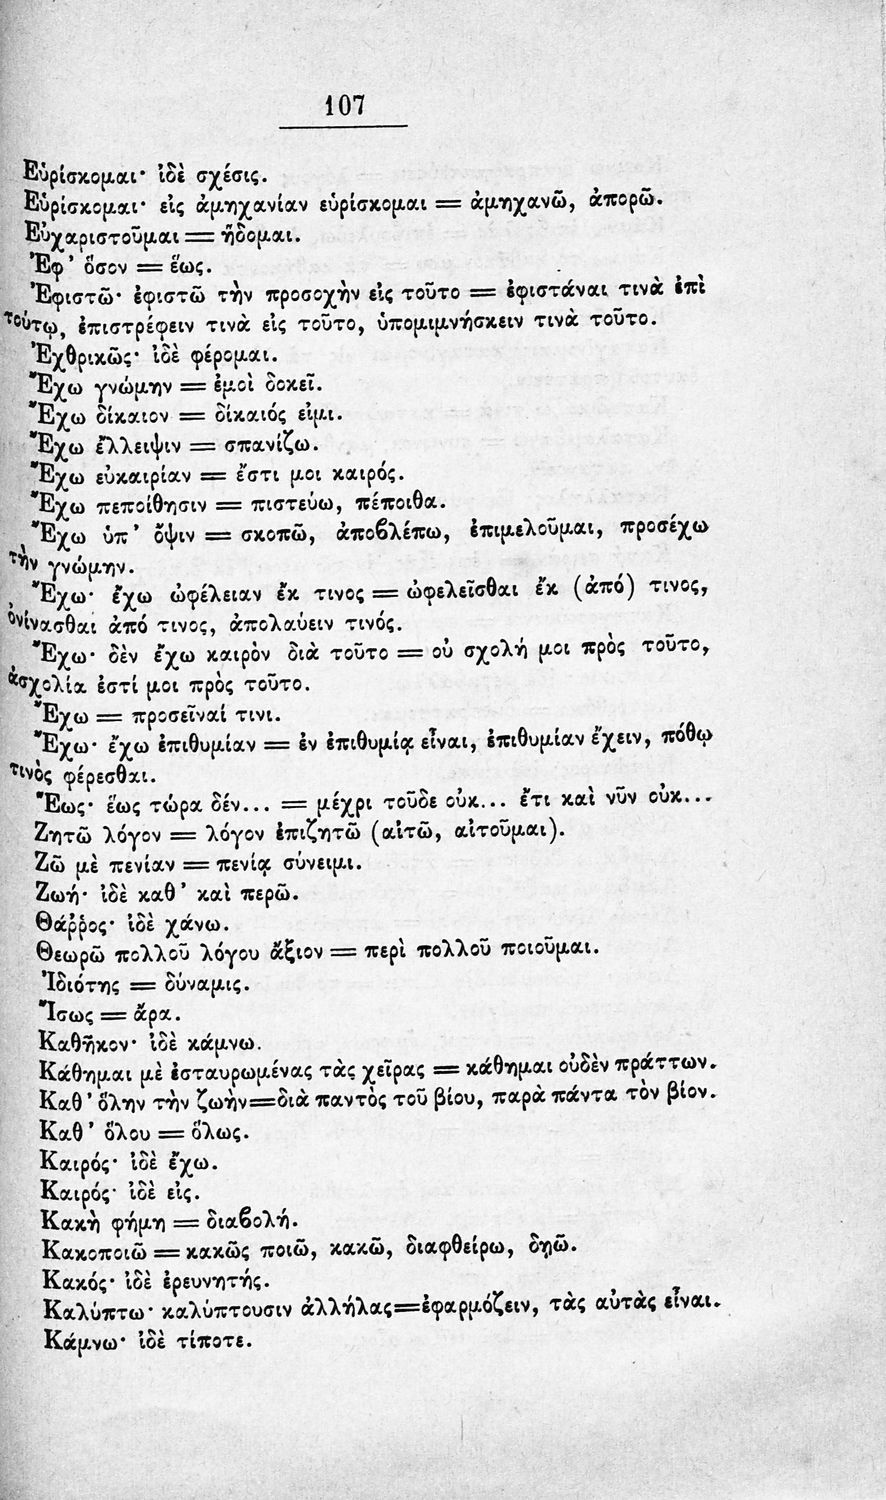 107
Εὑρίσκομαι· ἰδὲ σχέσις.
Εὑρίσκομαι· εἰς ἀμηχανίαν εὑρίσκομαι = ἀμηχανῶ, ἀπορῶ.
Εὐχαριστοῦμαι = ἥδομαι.
Ἐφ᾿ ὅσον = ἕως.
Ἐφιστῶ· ἐφιστῶ τὴν προσοχὴν εἰς τοῦτο = ἐφιστάναι τινὰ ἐπὶ
τούτῳ, ἐπιστρέφειν τινὰ εἰς τοῦτο, ὑπομιμνήσκειν τινὰ τοῦτο.
Ἐχθρικῶς· ἰδὲ φέρομαι.
Ἔχω γνώμην = ἐμοὶ δοκεῖ.
Ἔχω δίκαιον = δίκαιός εἰμι.
Ἔχω ἔλλειψιν = σπανίζω.
Ἔχω εὐκαιρίαν = ἔστι μοι καιρός.
Ἔχω πεποίθησιν = πιστεύω, πέποιθα.
Ἔχω ὑπ᾿ ὄψιν = σκοπῶ, ἀποβλέπω, ἐπιμελοῦμαι, προσέχω
τὴν γνώμην.
Ἔχω· ἔχω ὠφέλειαν ἔκ τινος = ὠφελεῖσθαι ἔκ (ἀπό) τινος,
ὀνίνασθαι ἀπό τινος, ἀπολαύειν τινός.
Ἔχω· δὲν ἔχω καιρὸν διὰ τοῦτο = οὐ σχολή μοι πρὸς τοῦτο,
ἀσχολία ἐστί μοι πρὸς τοῦτο.
Ἔχω = προσεῖναί τινι.
Ἔχω· ἔχω ἐπιθυμίαν = ἐν ἐπιθυμίᾳ εἶναι, ἐπιθυμίαν ἔχειν, πόθῳ
τινὸς φέρεσθαι.
Ἕως· ἕως τώρα δέν... = μέχρι τοῦδε οὐκ... ἔτι καὶ νῦν οὐκ...
Ζητῶ λόγον = λόγον ἐπιζητῶ (αἰτῶ, αἰτοῦμαι).
Ζῶ μὲ πενίαν = πενίᾳ σύνειμι.
Ζωή· ἰδὲ καθ᾿ καὶ περῶ.
Θάῤῥος· ἰδὲ χάνω.
Θεωρῶ πολλοῦ λόγου ἄξιον = περὶ πολλοῦ ποιοῦμαι.
Ἰδιότης = δύναμις.
Ἴσως = ἄρα.
Καθῆκον· ἰδὲ κάμνω.
Κάθημαι μὲ ἐσταυρωμένας τὰς χεῖρας = κάθημαι οὐδὲν πράττων.
Καθ᾿ ὅλην τὴν ζωὴν=διὰ παντὸς τοῦ βίου, παρὰ πάντα τὸν βίον.
Καθ᾿ ὅλου = ὅλως.
Καιρός· ἰδὲ ἔχω.
Καιρός· ἰδὲ εἰς.
Κακὴ φήμη = διαβολή.
Κακοποιῶ = κακῶς ποιῶ, κακῶ, διαφθείρω, δῃῶ.
Κακός· ἰδὲ ἐρευνητής.
Καλύπτω· καλύπτουσιν ἀλλήλας=ἐφαρμόζειν, τὰς αὐτὰς εἶναι.
Κάμνω· ἰδὲ τίποτε.